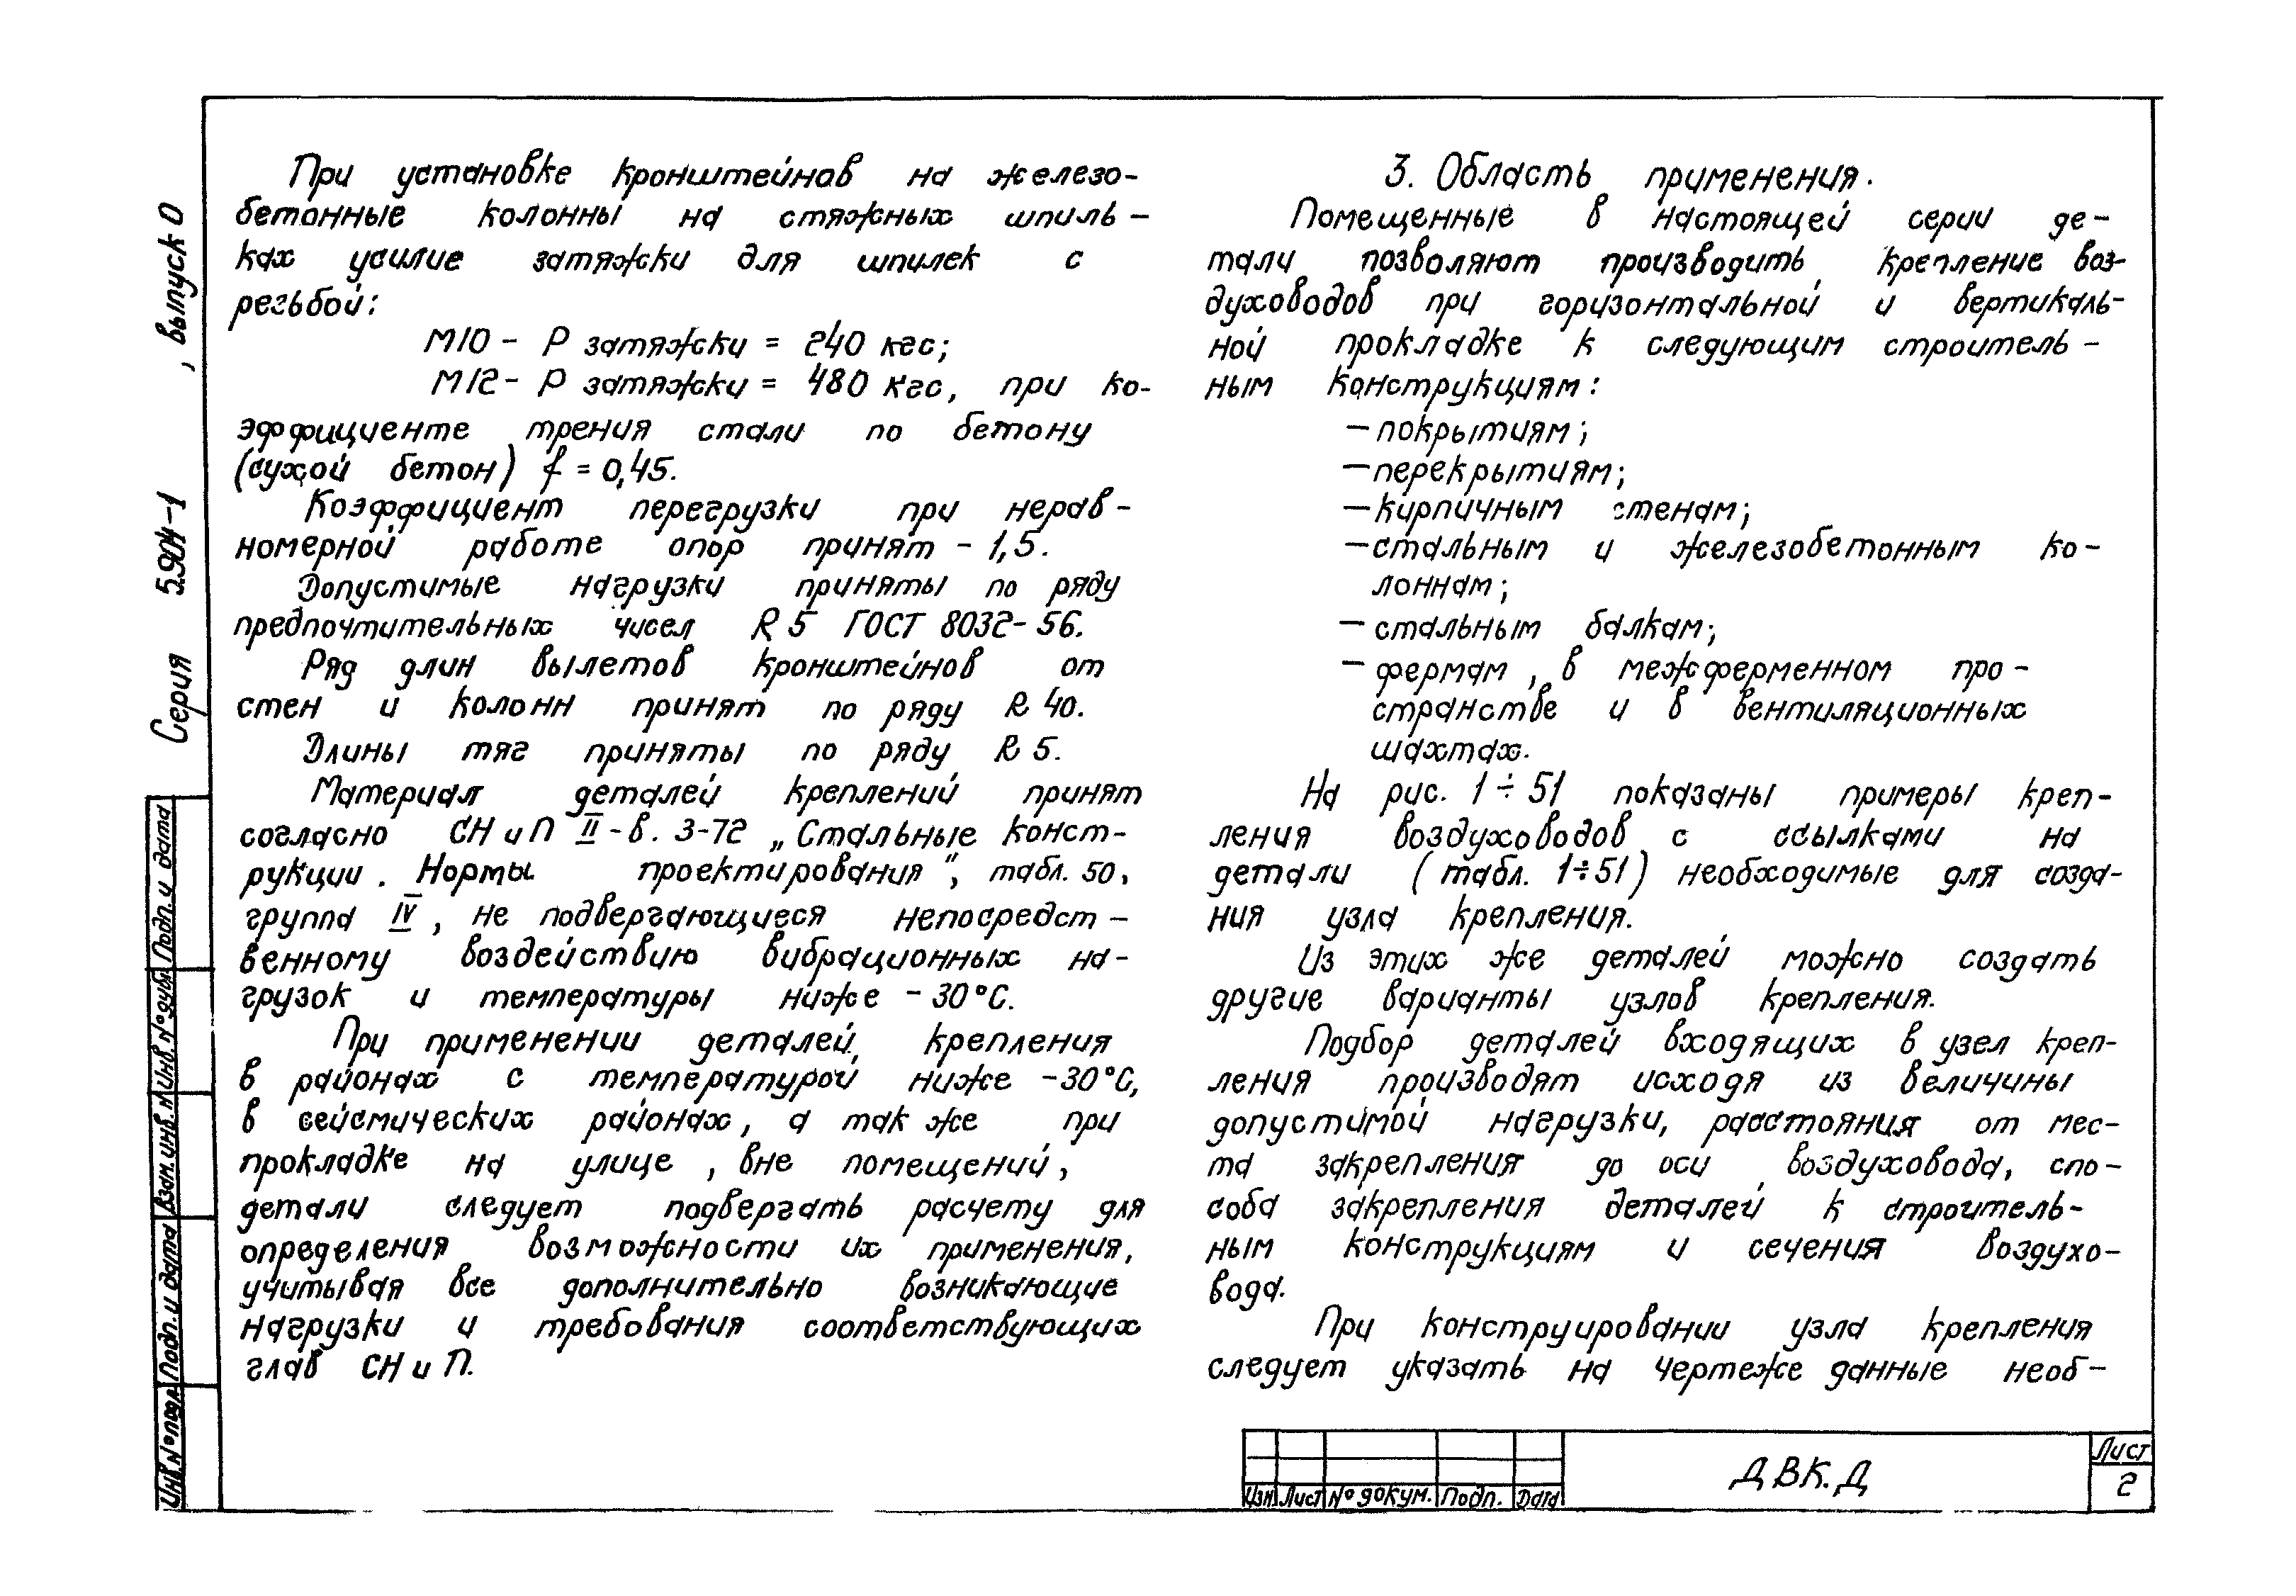 При установке кронштейнов на железо-
бетонные колонны на стяжных шпиль-
ках усилие затяжки для шпилек с
резьбой:
М10 - Р затяжки = 240 кгс;
М12 - Р затяжки = 480 кгс, при ко-
эффициенте трения стали по бетону
(сухой бетон) f = 0,45.
Коэффициент перегрузки при нерав-
номерной работе опор принят - 1,5.
Допустимые нагрузки приняты по ряду
предпочтительных чисел R 5 ГОСТ 8032-56.
Ряд длин вылетов кронштейнов от
стен и колонн принят по ряду R 40.
Длины тяг приняты по ряду R 5.
Материал деталей креплений принят
согласно СН и П II-в. 3-72 „Стальные конст-
рукции. Нормы проектирования“, табл. 50,
группа IV, не подвергающиеся непосредст-
венному воздействию вибрационных на-
грузок и температуры ниже -30°С.
При применении деталей крепления
в районах с температурой ниже -30°С,
в сейсмических районах, а так же при
прокладке на улице, вне помещений,
детали следует подвергать расчету для
определения возможности их применения,
учитывая все дополнительно возникающие
нагрузки и требования соответствующих
глав СН и П.
3. Область применения.
Помещенные в настоящей серии де-
тали позволяют производить крепление воз-
духоводов при горизонтальной и вертикаль-
ной прокладке к следующим строитель-
ным конструкциям:
- покрытиям;
- перекрытиям;
- кирпичным стенам;
- стальным и железобетонным ко-
лоннам;
- стальным балкам;
- фермам, в межферменном про-
странстве и в вентиляционных
шахтах.
На рис. 1÷51 показаны примеры креп-
ления воздуховодов с ссылками на
детали (табл. 1÷51) необходимые для созда-
ния узла крепления.
Из этих же деталей можно создать
другие варианты узлов крепления.
Подбор деталей входящих в узел креп-
ления производят исходя из величины
допустимой нагрузки, расстояния от мес-
та закрепления до оси воздуховода, спо-
соба закрепления деталей к строитель-
ным конструкциям и сечения воздухо-
вода.
При конструировании узла крепления
следует указать на чертеже данные необ-
Серия 5.904-1, выпуск 0
Подп. и дата
Инв. № дубл.
Взам. инв. №
Подп. и дата
Инв. № подл.
Изм Лист № докум. Подп. Дата
ДВК.Д
Лист
2